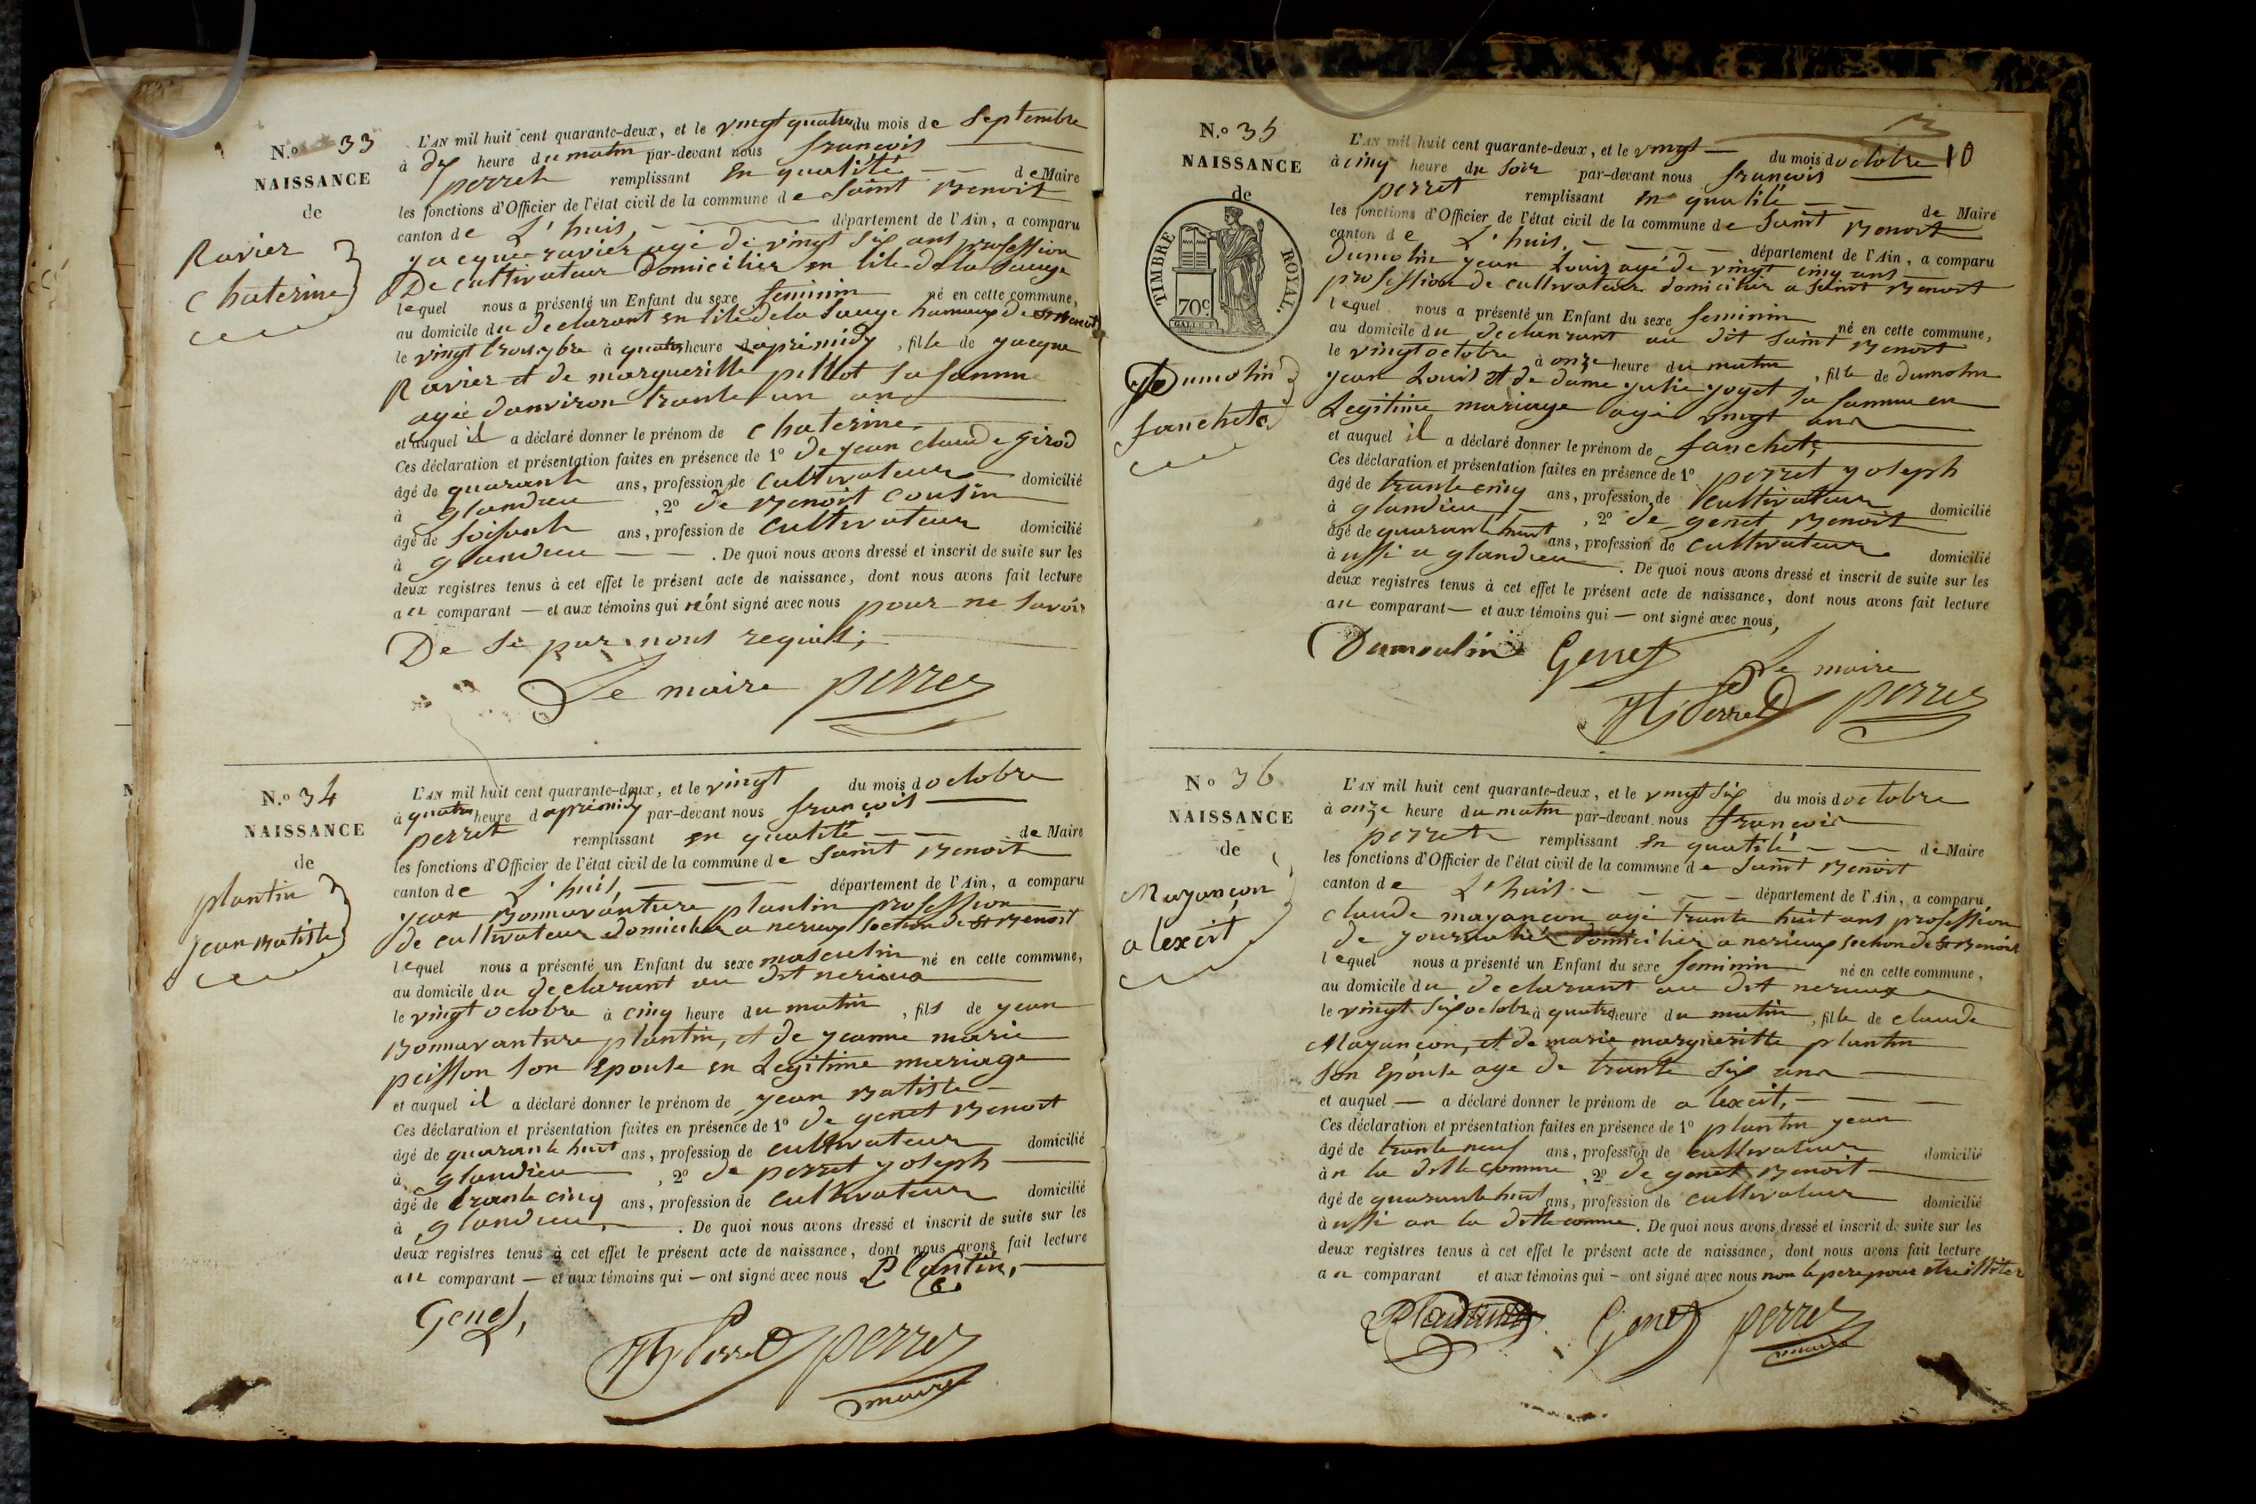 N.o 33
NAISSANCE
de
Ravier
Chaterine
L'AN mil huit cent quarante-deux, et le vingt quatre du mois de Septembre
à dix heure du matin par-devant nous francois
perret remplissant en qualité de Maire
les fonctions d'Officier de l'état civil de la commune de Saint Benoit
canton de L'huis, département de l'Ain, a comparu
yacque ravier agé de vingt six ans profession
De cultivateur Domicilier en lile de la Sauge
lequel nous a présenté un Enfant du sexe feminin né en cette commune,
au domicile du declarant en lile de la Sauge hamaux de St Benoit
le vingt trois 7bre à quatre heure d apremidy, fille de yacque
Ravier et de marguerille pillot sa famme
agée danviron trante un an
et auquel il a déclaré donner le prénom de Chaterine
Ces déclaration et présentation faites en présence de 1o de yean claude Girod
âgé de quarante ans, profession de cultivateur domicilié
à glandieu, 2o de Benoit Cousin
âgé de Soisante ans, profession de cultivateur domicilié
à glandieu. De quoi nous avons dressé et inscrit de suite sur les
deux registres tenus à cet effet le présent acte de naissance, dont nous avons fait lecture
au comparant — et aux témoins qui n'ont signé avec nous pour ne savoir
De se par nous requis;
Le maire perret
N.o 34
NAISSANCE
de
plantin
yean Batiste
L'AN mil huit cent quarante-deux, et le vingt du mois d octobre
à quatre heure d apremidy par-devant nous françois
perret remplissant en qualité de Maire
les fonctions d'Officier de l'état civil de la commune de Saint Benoit
canton de L'huis, département de l'Ain, a comparu
yean Bonnavanture plantin profession
de cultivateur domicilier a nerieux section de St Benoit
lequel nous a présenté un Enfant du sexe masculin né en cette commune,
au domicile du declarant au dit nerieux
le vingt octobre à cinq heure du matin, fils de yean
Bonnavanture plantin, et de yeanne marie
peisson son Epouse en Legitime mariage
et auquel il a déclaré donner le prénom de yean Batiste
Ces déclaration et présentation faites en présence de 1o de genet Benoit
âgé de quarante huit ans, profession de cultivateur domicilié
à glandieu, 2o de perret yoseph
âgé de trante cinq ans, profession de cultivateur domicilié
à glandieu. De quoi nous avons dressé et inscrit de suite sur les
deux registres tenus à cet effet le présent acte de naissance, dont nous avons fait lecture
au comparant — et aux témoins qui — ont signé avec nous Plantin,
Genet, Perret perret
maire
10
N.o 35
NAISSANCE
de
TIMBRE ROYAL.
70c.
Dumolin
fanchete
L'AN mil huit cent quarante-deux, et le vingt du mois d octobre
à cinq heure du soir par-devant nous francois
perret remplissant en qualité de Maire
les fonctions d'Officier de l'état civil de la commune de Saint Benoit
canton de L'huis. département de l'Ain, a comparu
Dumolin yean Louis agé de vingt cinq ans
profession de cultivateur domicilier a Saint Benoit
lequel nous a présenté un Enfant du sexe feminin né en cette commune,
au domicile du declanrant au dit Saint Benoit
le vingt octobre à onze heure du matin, fille de dumolin
yean Louis et de dame yulie yoget sa famme en
Legitime mariage agé vingt ans
et auquel il a déclaré donner le prénom de fanchete
Ces déclaration et présentation faites en présence de 1o perret yoseph
âgé de trante cinq ans, profession de cultivateur domicilié
à glandieu, 2o de genet Benoit
âgé de quarante huit ans, profession de cultivateur domicilié
à ussi a glandieu. De quoi nous avons dressé et inscrit de suite sur les
deux registres tenus à cet effet le présent acte de naissance, dont nous avons fait lecture
au comparant — et aux témoins qui — ont signé avec nous,
Dumoulin Genet Le maire
Perret perret
No 36
NAISSANCE
de
Mayançon
alexcit
L'AN mil huit cent quarante-deux, et le vingt six du mois d octobre
à onze heure du matin par-devant nous francois
perret remplissant en qualité de Maire
les fonctions d'Officier de l'état civil de la commune de Saint Benoit
canton de L'huis. département de l'Ain, a comparu
Claude mayancon agé trante huit ans profession
de yournalié domicilier a nerieux section de St Benoit
lequel nous a présenté un Enfant du sexe feminin né en cette commune,
au domicile du declarant au dit nerieux
le vingt six octobre à quatre heure du matin, fille de claude
Mayançon, et de marie marguerille plantin
son Epouse age de trante six ans
et auquel — a déclaré donner le prénom de alexcit,
Ces déclaration et présentation faites en présence de 1o plantin yean
âgé de trante neuf ans, profession de cultivateur domicilié
à n la ditte comme, 2o de genet Benoit
âgé de quarante huit ans, profession de cultivateur domicilié
à ussi an la ditte comme. De quoi nous avons dressé et inscrit de suite sur les
deux registres tenus à cet effet le présent acte de naissance, dont nous avons fait lecture
au comparant et aux témoins qui — ont signé avec nous non le pere pour etre illiter
Plantin Genet perret
maire